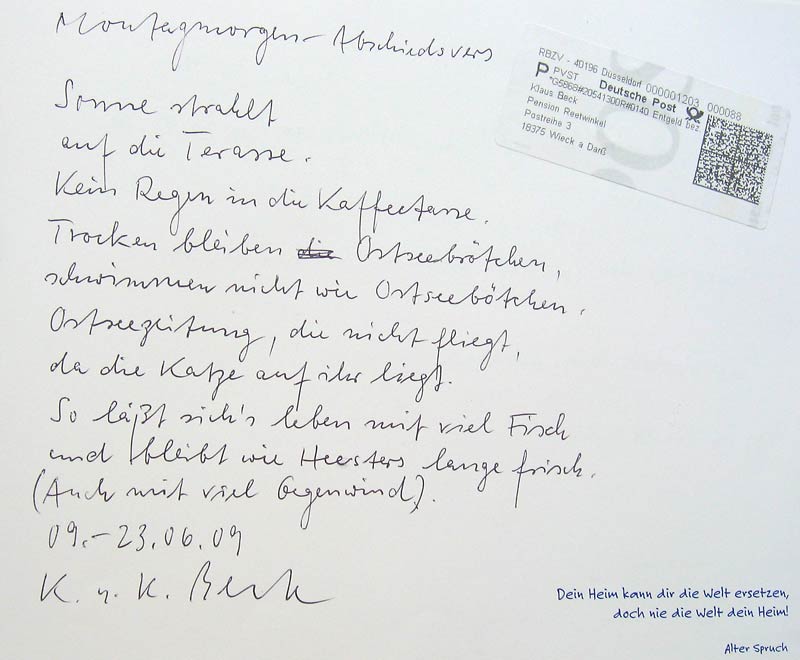 Montagmorgen - Abschiedsvers
RBZV - 40196 Düsseldorf 000001203 000088
P PVST Deutsche Post
*G5868#20541300R#0140 Entgeld bez.
Klaus Beck
Pension Reetwinkel
Postreihe 3
18375 Wieck a Darß
Sonne strahlt
auf die Terasse.
Kein Regen in die Kaffeetasse.
Trocken bleiben die Ostseebrötchen,
schwimmen nicht wie Ostseebötchen.
Ostseezeitung, die nicht fliegt,
da die Katze auf ihr liegt.
So läßt sich's leben mit viel Fisch
und bleibt wie Heesters lange frisch.
(Auch mit viel Gegenwind).
09.-23.06.09
K. u. K. Beck
Dein Heim kann dir die Welt ersetzen,
doch nie die Welt dein Heim!
Alter Spruch